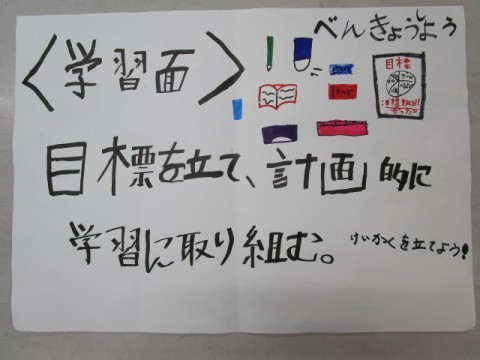 べんきょうしよう
〈学習面〉
目標
目標を立て、計画的に
学習に取り組む。
けいかくを立てよう!